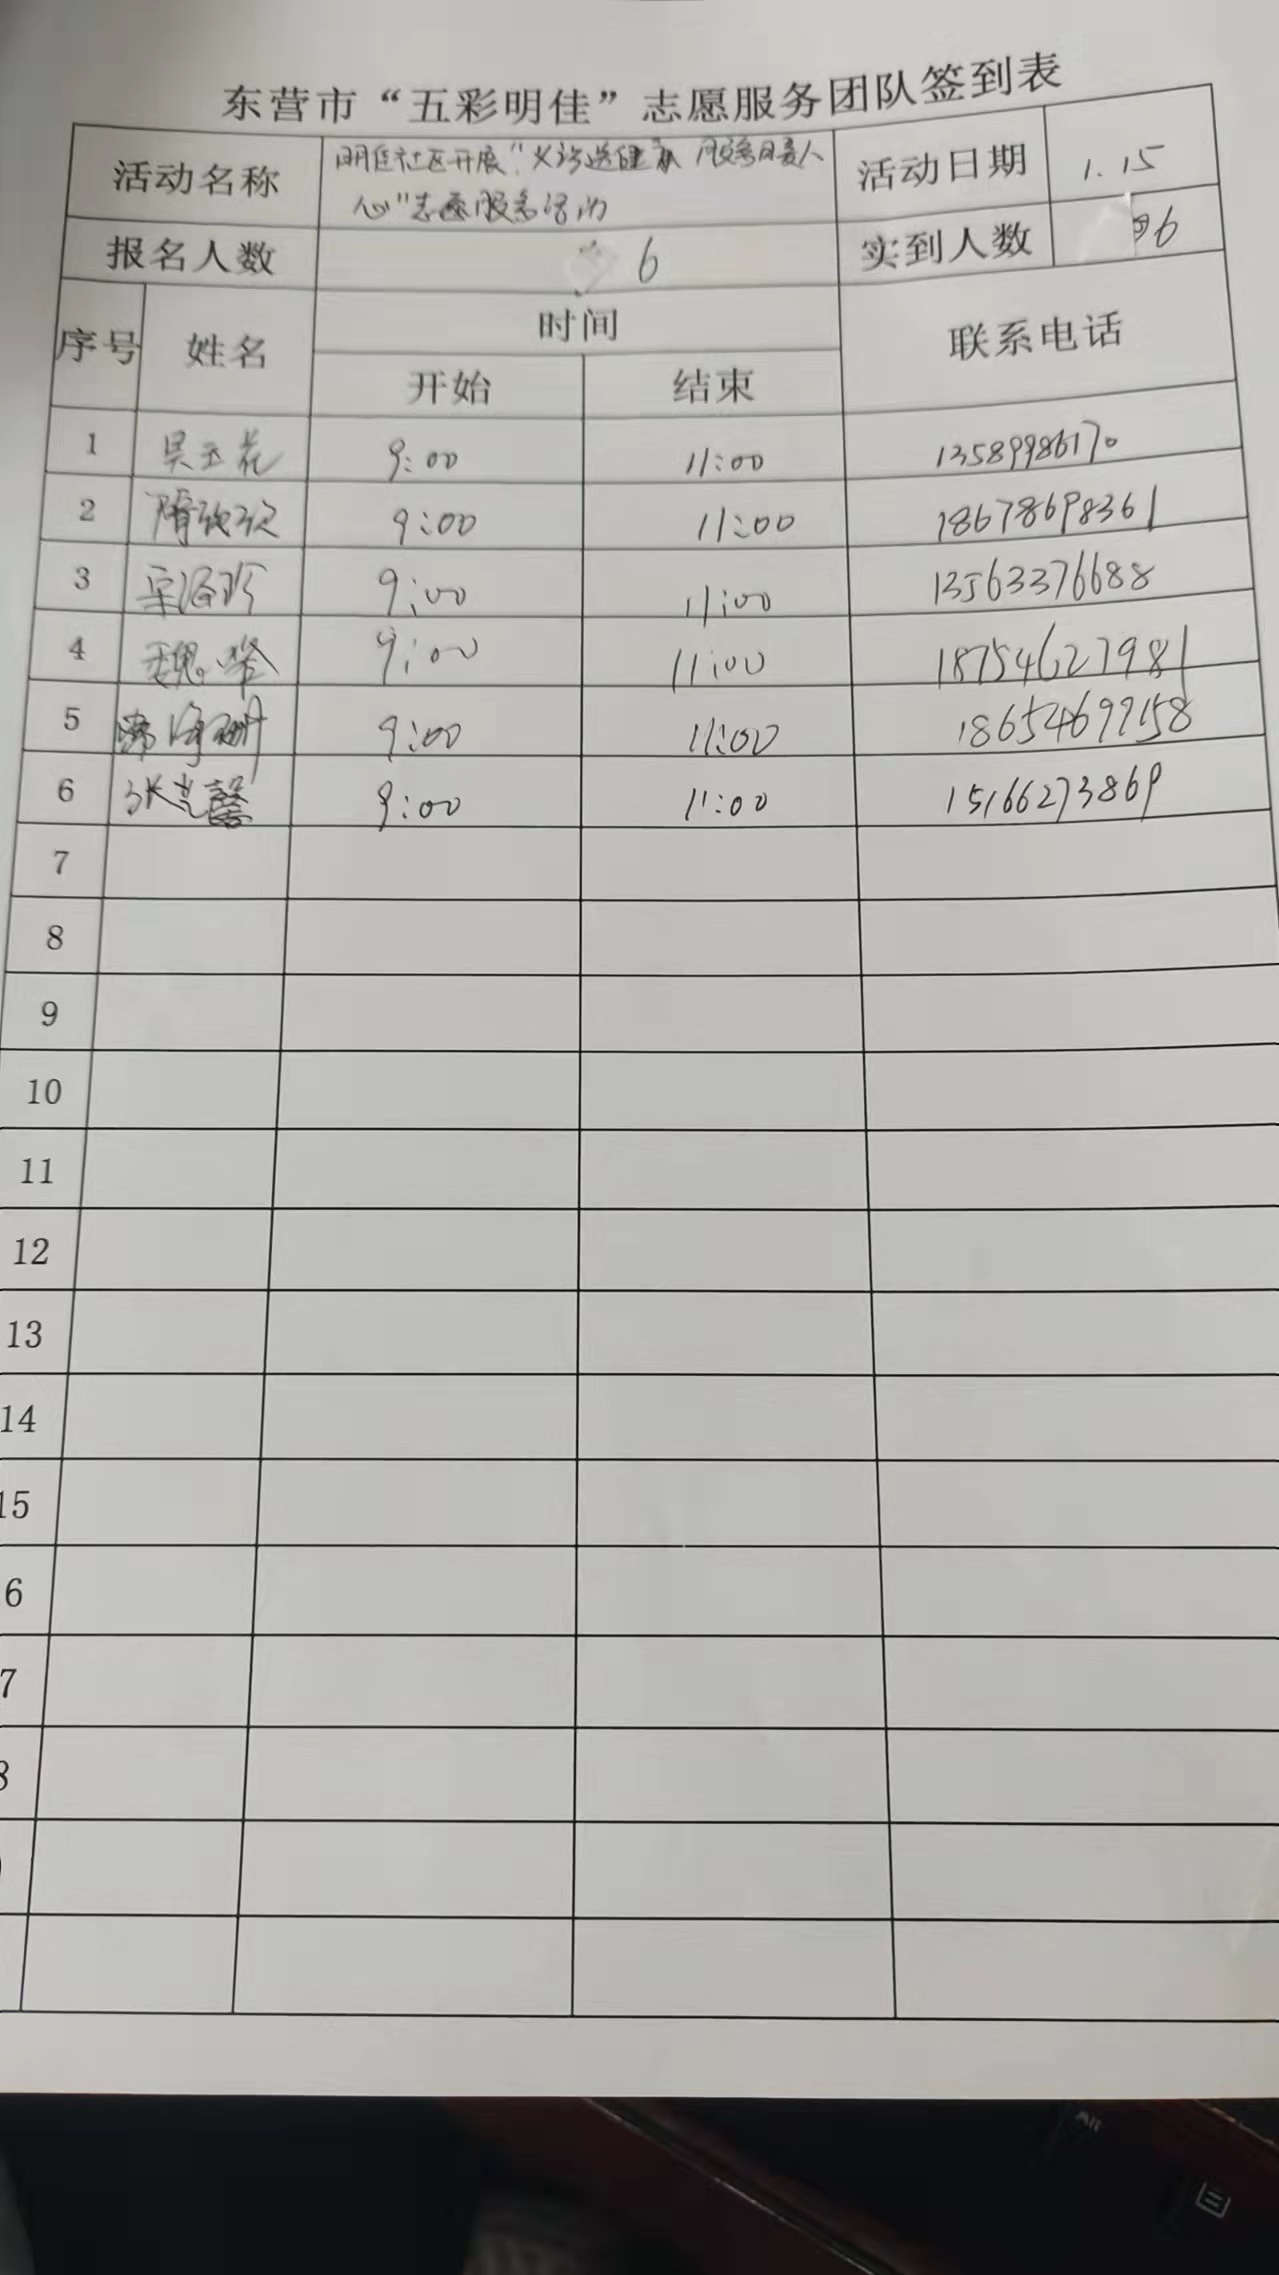 东营市“五彩明佳”志愿服务团队签到表
活动名称 明佳社区开展“义诊送健康 服务 人 活动日期 1.15
心”志愿服务活动
报名人数 6 实到人数 6
序号 姓名 时间 联系电话
开始 结束
1 吴玉花 9:00 11:00 13589986170
2 隋 9:00 11:00 18678698361
3 9:00 11:00 13563376688
4 魏 9:00 11:00 18754627981
5 9:00 11:00 18654699158
6 张 馨 9:00 11:00 15166273869
7
8
9
10
11
12
13
14
15
6
7
8
Alt